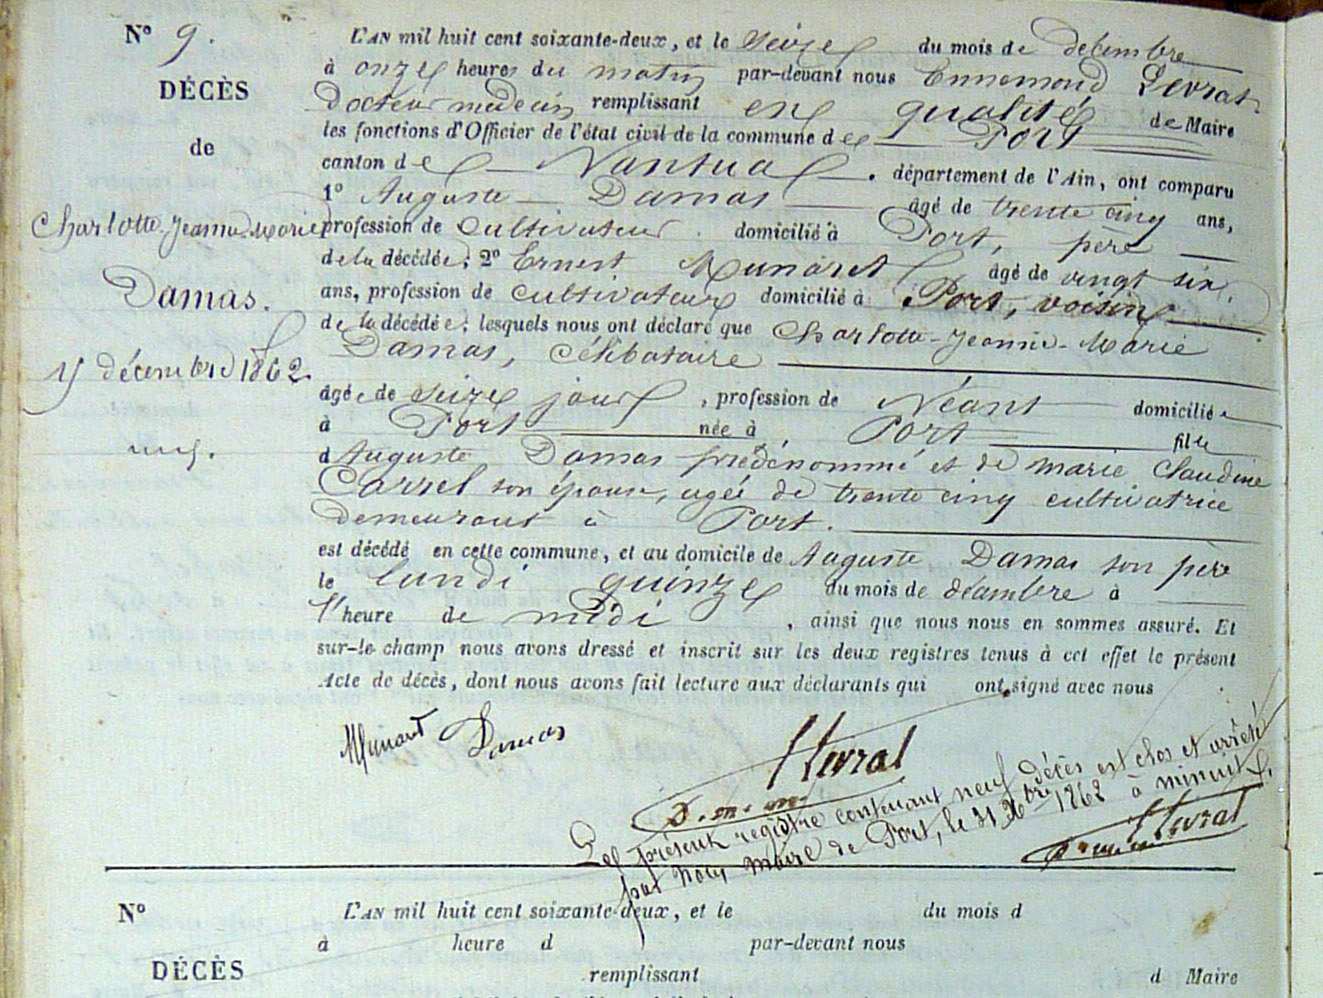 N° 9.
DÉCÈS
de
Charlotte Jeanne Marie
Damas.
15 décembre 1862.
L'AN mil huit cent soixante-deux, et le seize du mois de décembre
à onze heures du matin par-devant nous Ennemond Levrat
Docteur médecin remplissant en qualité de Maire
les fonctions d'Officier de l'état civil de la commune de Port
canton de Nantua. département de l'Ain, ont comparu
1° Auguste Damas âgé de trente cinq ans,
profession de cultivateur domicilié à Port, père
de la décédée; 2° Ernest Munaret âgé de vingt six
ans, profession de cultivateur domicilié à Port, voisin
de la décédée; lesquels nous ont déclaré que Charlotte-Jeanne-Marie
Damas, célibataire
âgée de seize jours, profession de Néant domiciliée
à Port née à Port fille
d'Auguste Damas prédénommé et de marie Claudine
Carrel son épouse, agée de trente cinq cultivatrice
demeurant à Port.
est décédé en cette commune, et au domicile de Auguste Damas son père
le lundi quinze du mois de décembre à
l'heure de midi, ainsi que nous nous en sommes assuré. Et
sur-le champ nous avons dressé et inscrit sur les deux registres tenus à cet effet le présent
Acte de décès, dont nous avons fait lecture aux déclarants qui ont signé avec nous
Munaret Damas
Levrat
Le présent registre contenant neuf décès est clos et arrêté
par nous maire de Port, le 31 Xbre 1862 à minuit.
Levrat
N°
DÉCÈS
L'AN mil huit cent soixante-deux, et le du mois d
à heure d par-devant nous
remplissant d Maire